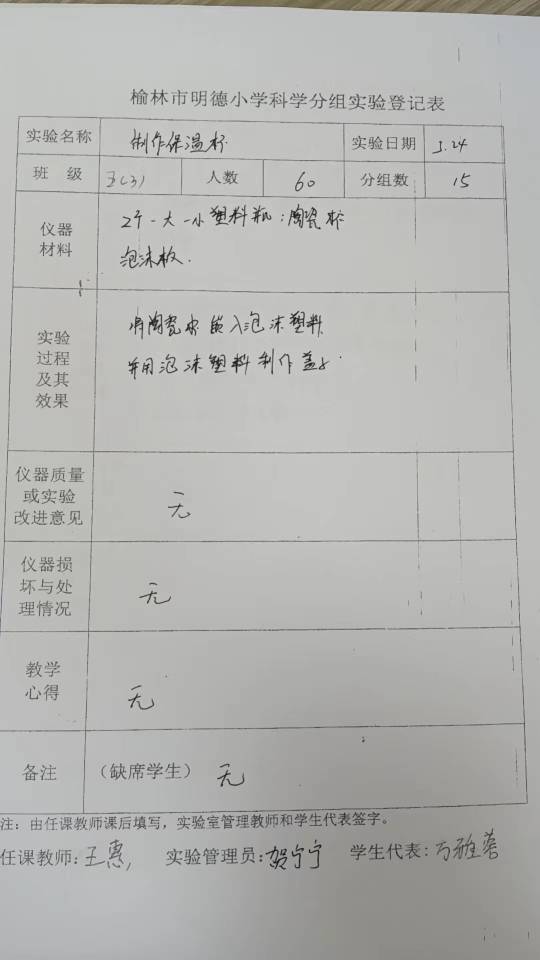 榆林市明德小学科学分组实验登记表
实验名称 制作保温杯 实验日期 3.24
班 级 五(3) 人数 60 分组数 15
仪器
材料
2个一大一小塑料瓶:陶瓷杯
泡沫板.
实验
过程
及其
效果
将陶瓷杯嵌入泡沫塑料
并用泡沫塑料制作盖子.
仪器质量
或实验
改进意见
无
仪器损
坏与处
理情况
无
教学
心得
无
备注 (缺席学生) 无
注:由任课教师课后填写,实验室管理教师和学生代表签字。
任课教师:王惠 实验管理员:贺宁宁 学生代表: